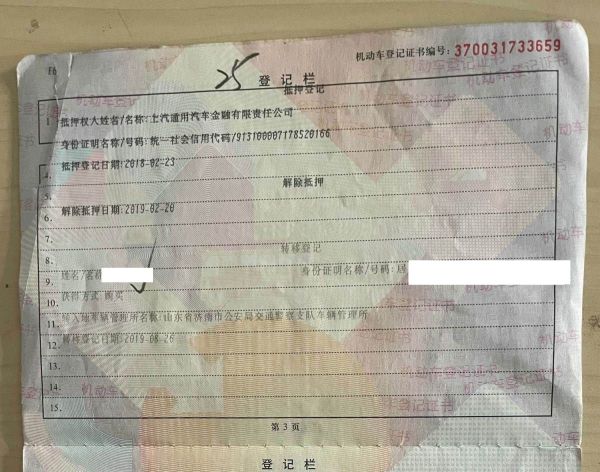 机动车登记证书编号：370031733659
25
登记栏
抵押登记
1. 抵押权人姓名/名称:上汽通用汽车金融有限责任公司
身份证明名称/号码:统一社会信用代码/91310000717852016​6
抵押登记日期:2018-02-23
4.
解除抵押
5.
6. 解除抵押日期:2019-02-20
7.
转移登记
8.
姓名/名称 身份证明名称/号码:居
9.
10. 获得方式:购买
11. 转入地车辆管理所名称:山东省济南市公安局交通警察支队车辆管理所
12. 转移登记日期:2019-08-26
13.
14.
15.
第3页
登记栏